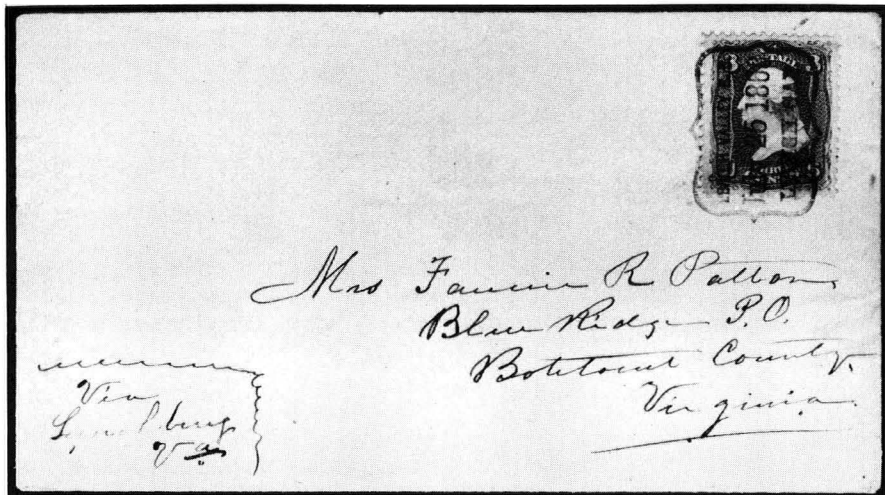 3 3
POSTAGE
25 186
Mrs Fannie R Patton
Blue Ridge P.O.
Botetourt County.
Virginia
Via
Lynchburg
Va